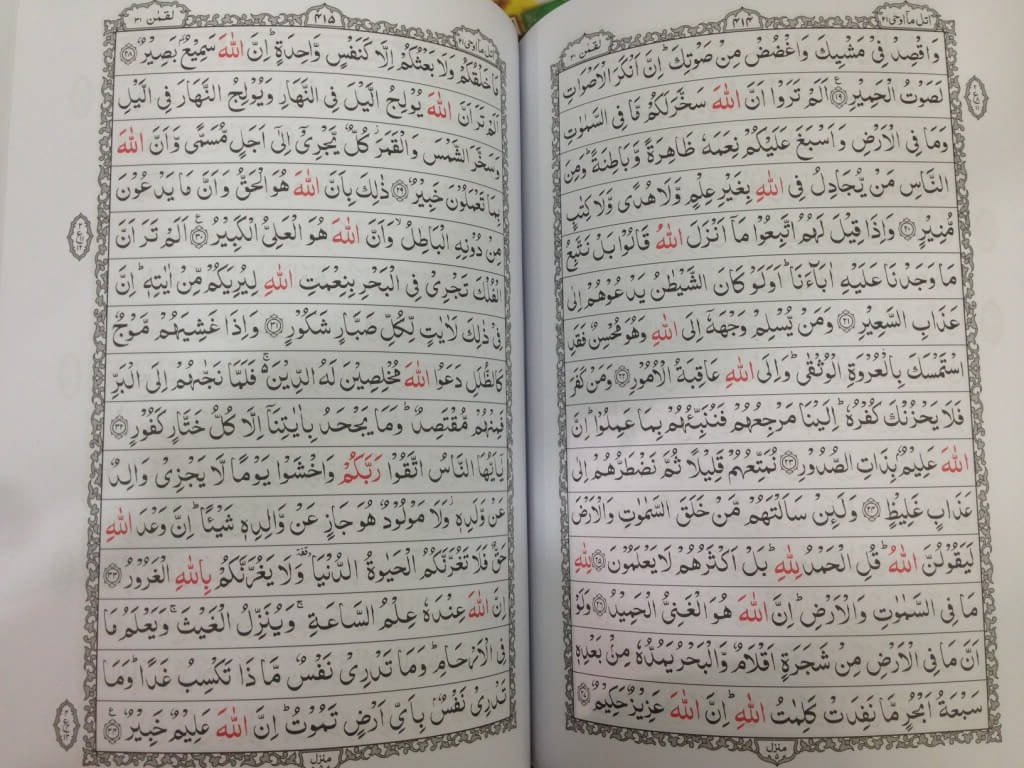 اتل مآ اوحی ۲۱
۴۱۴
لقمٰن ۳۱
وَاقْصِدْ فِیْ مَشْیِكَ وَاغْضُضْ مِنْ صَوْتِكَ ؕ اِنَّ اَنْكَرَ الْاَصْوَاتِ
لَصَوْتُ الْحَمِیْرِ ۟۱۹ اَلَمْ تَرَوْا اَنَّ اللّٰهَ سَخَّرَ لَكُمْ مَّا فِی السَّمٰوٰتِ
وَمَا فِی الْاَرْضِ وَاَسْبَغَ عَلَیْكُمْ نِعَمَهٗ ظَاهِرَةً وَّبَاطِنَةً ؕ وَمِنَ
النَّاسِ مَنْ یُّجَادِلُ فِی اللّٰهِ بِغَیْرِ عِلْمٍ وَّلَا هُدًی وَّلَا كِتٰبٍ
مُّنِیْرٍ ۟۲۰ وَاِذَا قِیْلَ لَهُمُ اتَّبِعُوْا مَاۤ اَنْزَلَ اللّٰهُ قَالُوْا بَلْ نَتَّبِعُ
مَا وَجَدْنَا عَلَیْهِ اٰبَآءَنَا ؕ اَوَلَوْ كَانَ الشَّیْطٰنُ یَدْعُوْهُمْ اِلٰی
عَذَابِ السَّعِیْرِ ۟۲۱ وَمَنْ یُّسْلِمْ وَجْهَهٗۤ اِلَی اللّٰهِ وَهُوَ مُحْسِنٌ فَقَدِ
اسْتَمْسَكَ بِالْعُرْوَةِ الْوُثْقٰی ؕ وَاِلَی اللّٰهِ عَاقِبَةُ الْاُمُوْرِ ۟۲۲ وَمَنْ كَفَرَ
فَلَا یَحْزُنْكَ كُفْرُهٗ ؕ اِلَیْنَا مَرْجِعُهُمْ فَنُنَبِّئُهُمْ بِمَا عَمِلُوْا ؕ اِنَّ
اللّٰهَ عَلِیْمٌۢ بِذَاتِ الصُّدُوْرِ ۟۲۳ نُمَتِّعُهُمْ قَلِیْلًا ثُمَّ نَضْطَرُّهُمْ اِلٰی
عَذَابٍ غَلِیْظٍ ۟۲۴ وَلَئِنْ سَاَلْتَهُمْ مَّنْ خَلَقَ السَّمٰوٰتِ وَالْاَرْضَ
لَیَقُوْلُنَّ اللّٰهُ ؕ قُلِ الْحَمْدُ لِلّٰهِ ؕ بَلْ اَكْثَرُهُمْ لَا یَعْلَمُوْنَ ۟۲۵ لِلّٰهِ
مَا فِی السَّمٰوٰتِ وَالْاَرْضِ ؕ اِنَّ اللّٰهَ هُوَ الْغَنِیُّ الْحَمِیْدُ ۟۲۶ وَلَوْ
اَنَّ مَا فِی الْاَرْضِ مِنْ شَجَرَةٍ اَقْلَامٌ وَّالْبَحْرُ یَمُدُّهٗ مِنْۢ بَعْدِهٖ
سَبْعَةُ اَبْحُرٍ مَّا نَفِدَتْ كَلِمٰتُ اللّٰهِ ؕ اِنَّ اللّٰهَ عَزِیْزٌ حَكِیْمٌ ۟۲۷
منزل
اتل مآ اوحی ۲۱
۴۱۵
لقمٰن ۳۱
مَا خَلْقُكُمْ وَلَا بَعْثُكُمْ اِلَّا كَنَفْسٍ وَّاحِدَةٍ ؕ اِنَّ اللّٰهَ سَمِیْعٌۢ بَصِیْرٌ ۟۲۸
اَلَمْ تَرَ اَنَّ اللّٰهَ یُوْلِجُ الَّیْلَ فِی النَّهَارِ وَیُوْلِجُ النَّهَارَ فِی الَّیْلِ
وَسَخَّرَ الشَّمْسَ وَالْقَمَرَ ؗ كُلٌّ یَّجْرِیْۤ اِلٰۤی اَجَلٍ مُّسَمًّی وَّاَنَّ اللّٰهَ
بِمَا تَعْمَلُوْنَ خَبِیْرٌ ۟۲۹ ذٰلِكَ بِاَنَّ اللّٰهَ هُوَ الْحَقُّ وَاَنَّ مَا یَدْعُوْنَ
مِنْ دُوْنِهِ الْبَاطِلُ ۙ وَاَنَّ اللّٰهَ هُوَ الْعَلِیُّ الْكَبِیْرُ ۟۳۰ اَلَمْ تَرَ اَنَّ
الْفُلْكَ تَجْرِیْ فِی الْبَحْرِ بِنِعْمَتِ اللّٰهِ لِیُرِیَكُمْ مِّنْ اٰیٰتِهٖ ؕ اِنَّ
فِیْ ذٰلِكَ لَاٰیٰتٍ لِّكُلِّ صَبَّارٍ شَكُوْرٍ ۟۳۱ وَاِذَا غَشِیَهُمْ مَّوْجٌ
كَالظُّلَلِ دَعَوُا اللّٰهَ مُخْلِصِیْنَ لَهُ الدِّیْنَ ۬ۚ فَلَمَّا نَجّٰىهُمْ اِلَی الْبَرِّ
فَمِنْهُمْ مُّقْتَصِدٌ ؕ وَمَا یَجْحَدُ بِاٰیٰتِنَاۤ اِلَّا كُلُّ خَتَّارٍ كَفُوْرٍ ۟۳۲
یٰۤاَیُّهَا النَّاسُ اتَّقُوْا رَبَّكُمْ وَاخْشَوْا یَوْمًا لَّا یَجْزِیْ وَالِدٌ
عَنْ وَّلَدِهٖ ؗ وَلَا مَوْلُوْدٌ هُوَ جَازٍ عَنْ وَّالِدِهٖ شَیْئًا ؕ اِنَّ وَعْدَ اللّٰهِ
حَقٌّ فَلَا تَغُرَّنَّكُمُ الْحَیٰوةُ الدُّنْیَا ۥ وَلَا یَغُرَّنَّكُمْ بِاللّٰهِ الْغَرُوْرُ ۟۳۳
اِنَّ اللّٰهَ عِنْدَهٗ عِلْمُ السَّاعَةِ ۚ وَیُنَزِّلُ الْغَیْثَ ۚ وَیَعْلَمُ مَا
فِی الْاَرْحَامِ ؕ وَمَا تَدْرِیْ نَفْسٌ مَّاذَا تَكْسِبُ غَدًا ؕ وَمَا
تَدْرِیْ نَفْسٌۢ بِاَیِّ اَرْضٍ تَمُوْتُ ؕ اِنَّ اللّٰهَ عَلِیْمٌ خَبِیْرٌ ۟۳۴
منزل